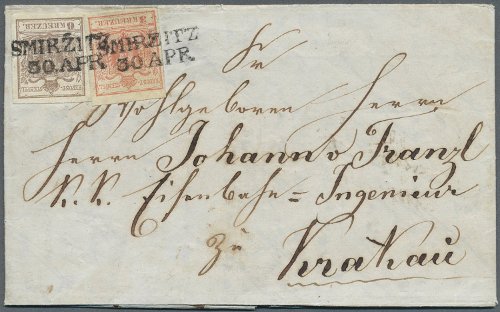 6 KREUZER
3 KREUZER
SMIRZITZ
30 APR
SMIRZITZ
30 APR
Sr
Wohlgeboren Herrn
Herrn Johann v Franzl
K. K. Eisenbahn = Ingenieur
zu
Krakau